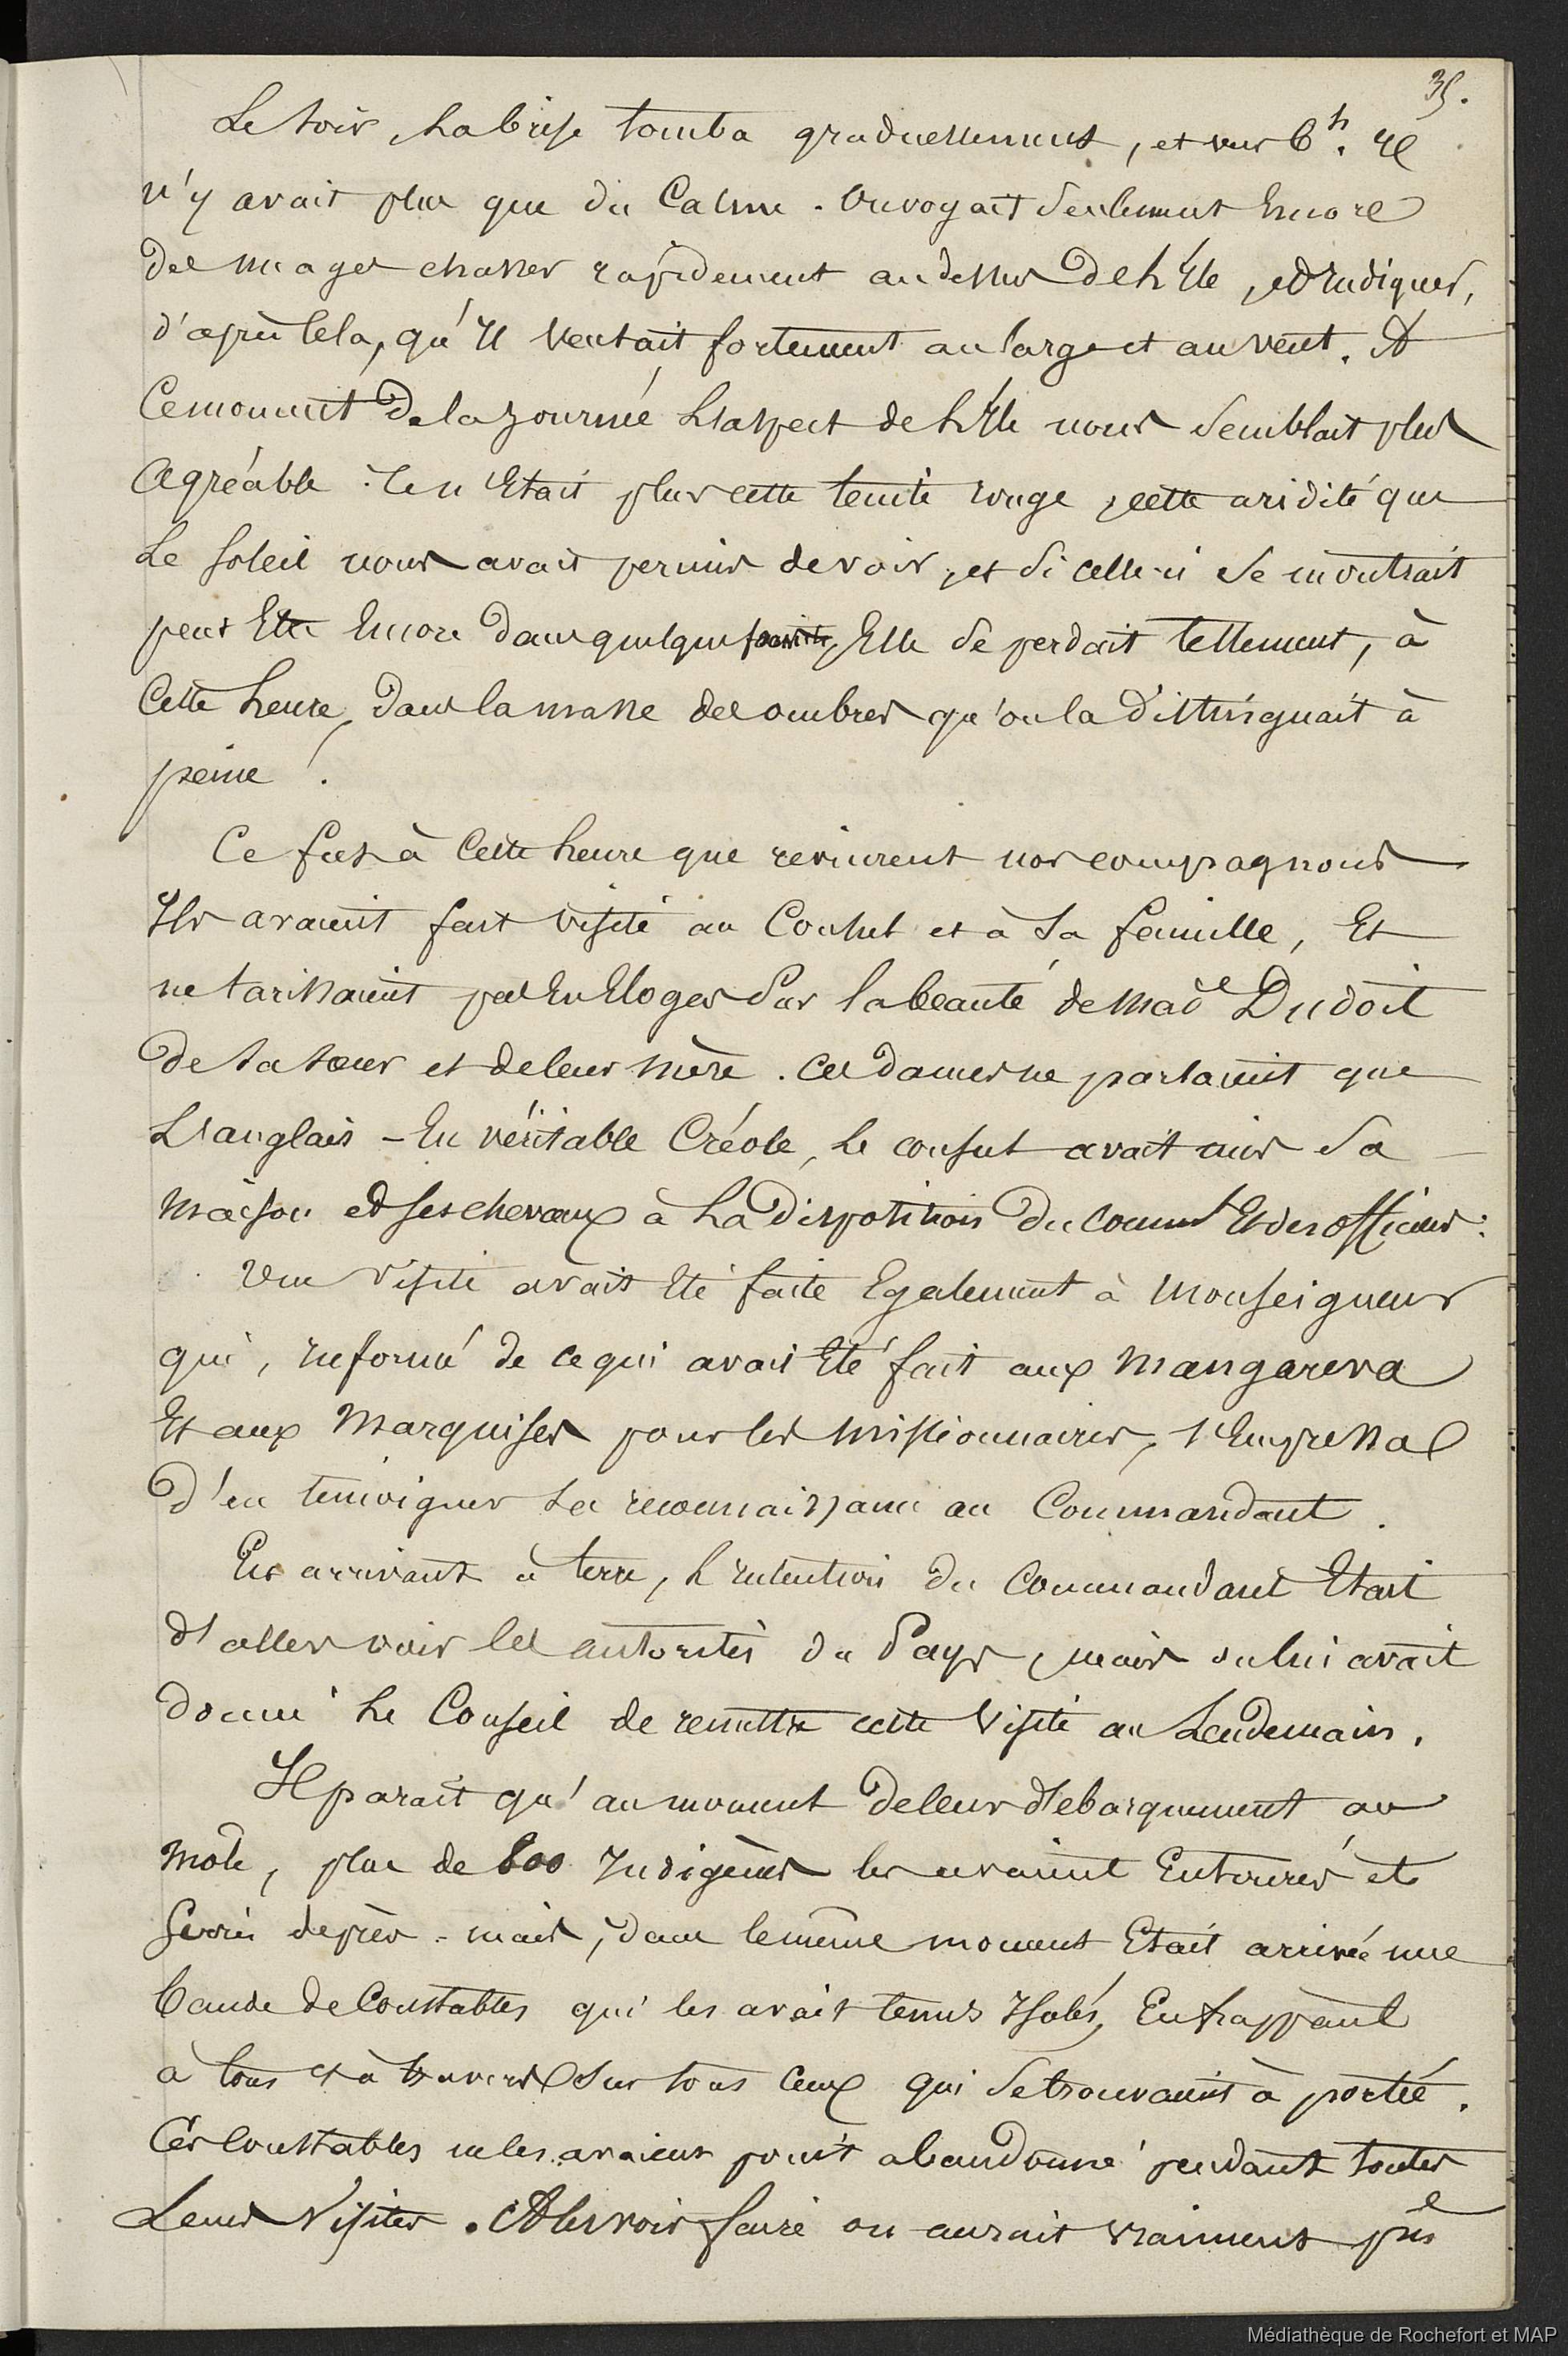 35.
Le soir, la brise tomba graduellement, et vers 6h. Il
n'y avait plus que du Calme. On voyait seulement Encore
des nuages chasser rapidement au dessus de l'Ile, et Indiquer,
d'après Cela, qu'Il Ventait fortement au large et au vent. A
Ce moment De la Journée L'aspect de l'Ile nous semblait plus
Agréable. Ce n'Etait plus cette teinte rouge, cette aridité que
Le Soleil nous avait permis de voir, et si celle-ci se montrait
peut Etre Encore Dans quelques, Elle se perdait tellement, à
Cette heure, Dans la masse des ombres qu'on la Distinguait à
peine !.
Ce fut à Cette heure que revinrent nos compagnons
Ils avaient fait visite au Consul et à Sa famille, Et
ne tarissaient pas En Eloges Sur la beauté de Made Dudoit
De sa sœur et de leur Mère. Ces Dames ne parlaient que
L'anglais - En véritable Créole, le consul avait mis Sa
Maison et ses chevaux à La Disposition Du Commt Et des officiers.
Une Visite avait Eté faite Egalement à Monseigneur
qui, Informé de ce qui avait Eté fait aux Mangareva
Et aux Marquises pour les Missionnaires, s'Empressa
D'en témoigner sa reconnaissance au Commandant.
En arrivant à terre, L'Intention du Commandant Etait
d'aller voir les autorités du Pays, mais on lui avait
Donné Le Conseil de remettre cette Visite au Lendemain.
Il parait qu'au moment De leur débarquement au
Môle, plus de 800 Indigènes les avaient Entourés et
Serrés de près - mais, Dans le même moment Etait arrivée une
bande de Constables qui les avait tenus Isolés, En frappant
à tors et à travers Sur tous Ceux qui se trouvaient à portée.
Ces Constables ne les avaient point abandonné pendant toutes
Leurs Visites. A les voir faire on aurait vraiment pris
Médiathèque de Rochefort et MAP